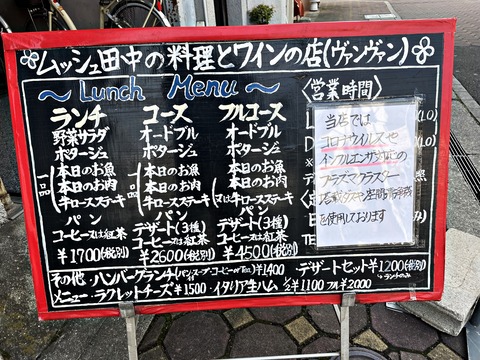 ムッシュ田中の料理とワインの店(ヴァンヴァン)
~Lunch Menu~
ランチ
野菜サラダ
ポタージュ
一品
本日のお魚
本日のお肉
牛ロースステーキ
パン
コーヒー又は紅茶
¥1700(税別)
コース
オードブル
ポタージュ
本日のお魚
本日のお肉
牛ロースステーキ
パン
デザート(3種)
コーヒー又は紅茶
¥2600(税別)
フルコース
オードブル
ポタージュ
本日のお魚
本日のお肉
又は牛ロースステーキ
パン
デザート(3種)
コーヒー又は紅茶
¥4500(税別)
〈営業時間〉
当店では
コロナウイルスや
インフルエンザ対応の
プラズマクラスター
を使用しております
その他・ハンバーグランチ(パン・スープ・コーヒーorTea)¥1400 デザートセット¥1200(税別)
↳ランチのみ
メニュー・ラクレットチーズ¥1500・イタリア生ハム ½¥1100 フル¥2000